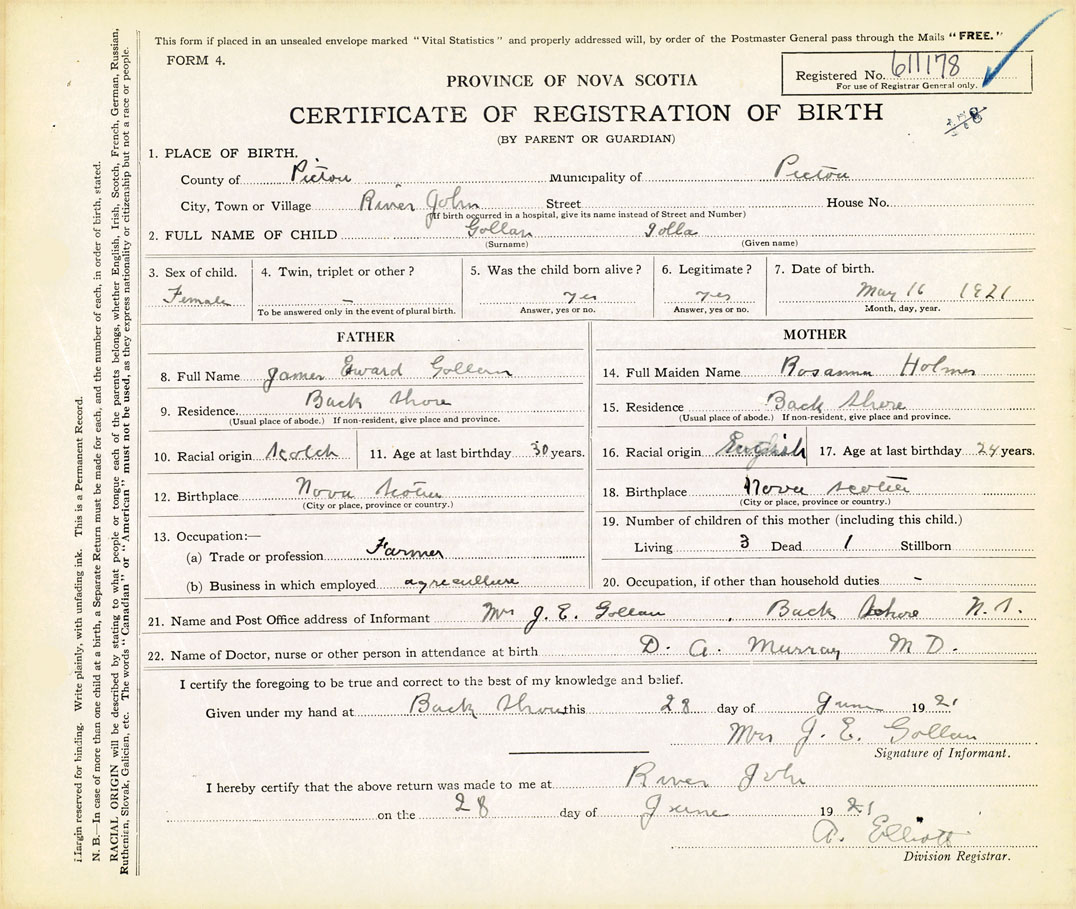 This form if placed in an unsealed envelope marked "Vital Statistics" and properly addressed will, by order of the Postmaster General pass through the Mails "FREE."
FORM 4.
Registered No. 611178
For use of Registrar General only.
PROVINCE OF NOVA SCOTIA
CERTIFICATE OF REGISTRATION OF BIRTH
(BY PARENT OR GUARDIAN)
1. PLACE OF BIRTH.
County of Pictou Municipality of Pictou
City, Town or Village River John Street House No.
(If birth occurred in a hospital, give its name instead of Street and Number)
2. FULL NAME OF CHILD Gollan
(Surname) (Given name)
3. Sex of child. 4. Twin, triplet or other? 5. Was the child born alive? 6. Legitimate? 7. Date of birth.
Female – yes yes May 16 1921
To be answered only in the event of plural birth. Answer, yes or no. Answer, yes or no. Month, day, year.
FATHER
8. Full Name James Edward Gollan
9. Residence. Back Shore
(Usual place of abode.) If non-resident, give place and province.
10. Racial origin Scotch 11. Age at last birthday 30 years.
12. Birthplace Nova Scotia
(City or place, province or country.)
13. Occupation:—
(a) Trade or profession Farmer
(b) Business in which employed agriculture
MOTHER
14. Full Maiden Name Rosanna Holmes
15. Residence Back Shore
(Usual place of abode.) If non-resident, give place and province.
16. Racial origin English 17. Age at last birthday 24 years.
18. Birthplace Nova Scotia
(City or place, province or country.)
19. Number of children of this mother (including this child.)
Living 3 Dead 1 Stillborn
20. Occupation, if other than household duties –
21. Name and Post Office address of Informant Mrs J. E. Gollan, Back Shore N. S.
22. Name of Doctor, nurse or other person in attendance at birth D. A. Murray M D.
I certify the foregoing to be true and correct to the best of my knowledge and belief.
Given under my hand at Back Shore this 28 day of June 1921
Mrs J. E. Gollan
Signature of Informant.
I hereby certify that the above return was made to me at River John
on the 28 day of June 1921
A. Elliott
Division Registrar.
Margin reserved for binding. Write plainly, with unfading ink. This is a Permanent Record.
N. B.—In case of more than one child at a birth, a Separate Return must be made for each, and the number of each, in order of birth, stated.
RACIAL ORIGIN will be described by stating to what people or tongue each of the parents belongs, whether English, Irish, Scotch, French, German, Russian,
Ruthenian, Slovak, Galician, etc. The words "Canadian" or "American" must not be used, as they express nationality or citizenship but not a race or people.